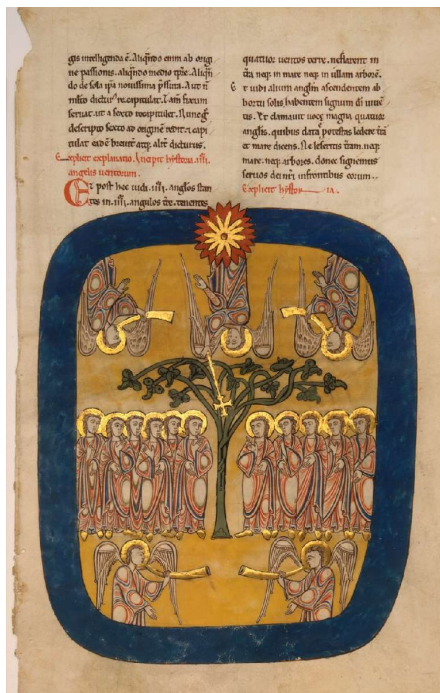 gis intelligenda ē. Aliqñdo enim ab origi
ne passionis. aliqñdo medio tp̄re. Aliqñ
do de sola ipa novissima p̄ssura. 
servat. ut a sexto recapitulet.
descripto sexto ad originē redit
Explicit explanatio. Incipit hystoria. iiii.
angelis ventorum.
Et post hec vidi. iiii. anglos stan
tes in. iiii. angulos tr̄e. tenentes
quattuor ventos terre. ne flarent in
t̄ra neq; in mare neq; in ullam arborē.
Et vidi alium anglm̄ ascendentem ab
hortu solis. habentem signum dī vivē
tis. Et clamavit voce magna quattuor
anglis. quibus data potestas ledere t̄rā
et mare dicens. Ne leseritis t̄ram. neq;
mare. neq; arbores. donec signemus
servos dei nr̄i in frontibus eorum.
Explicit hystoria.